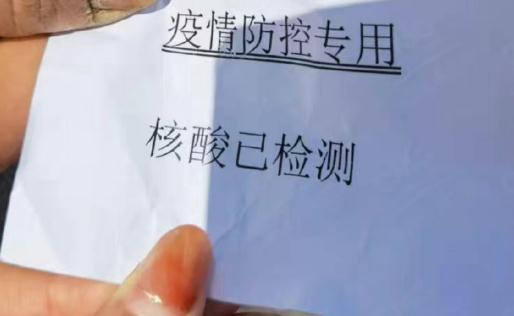 疫情防控专用
核酸已检测